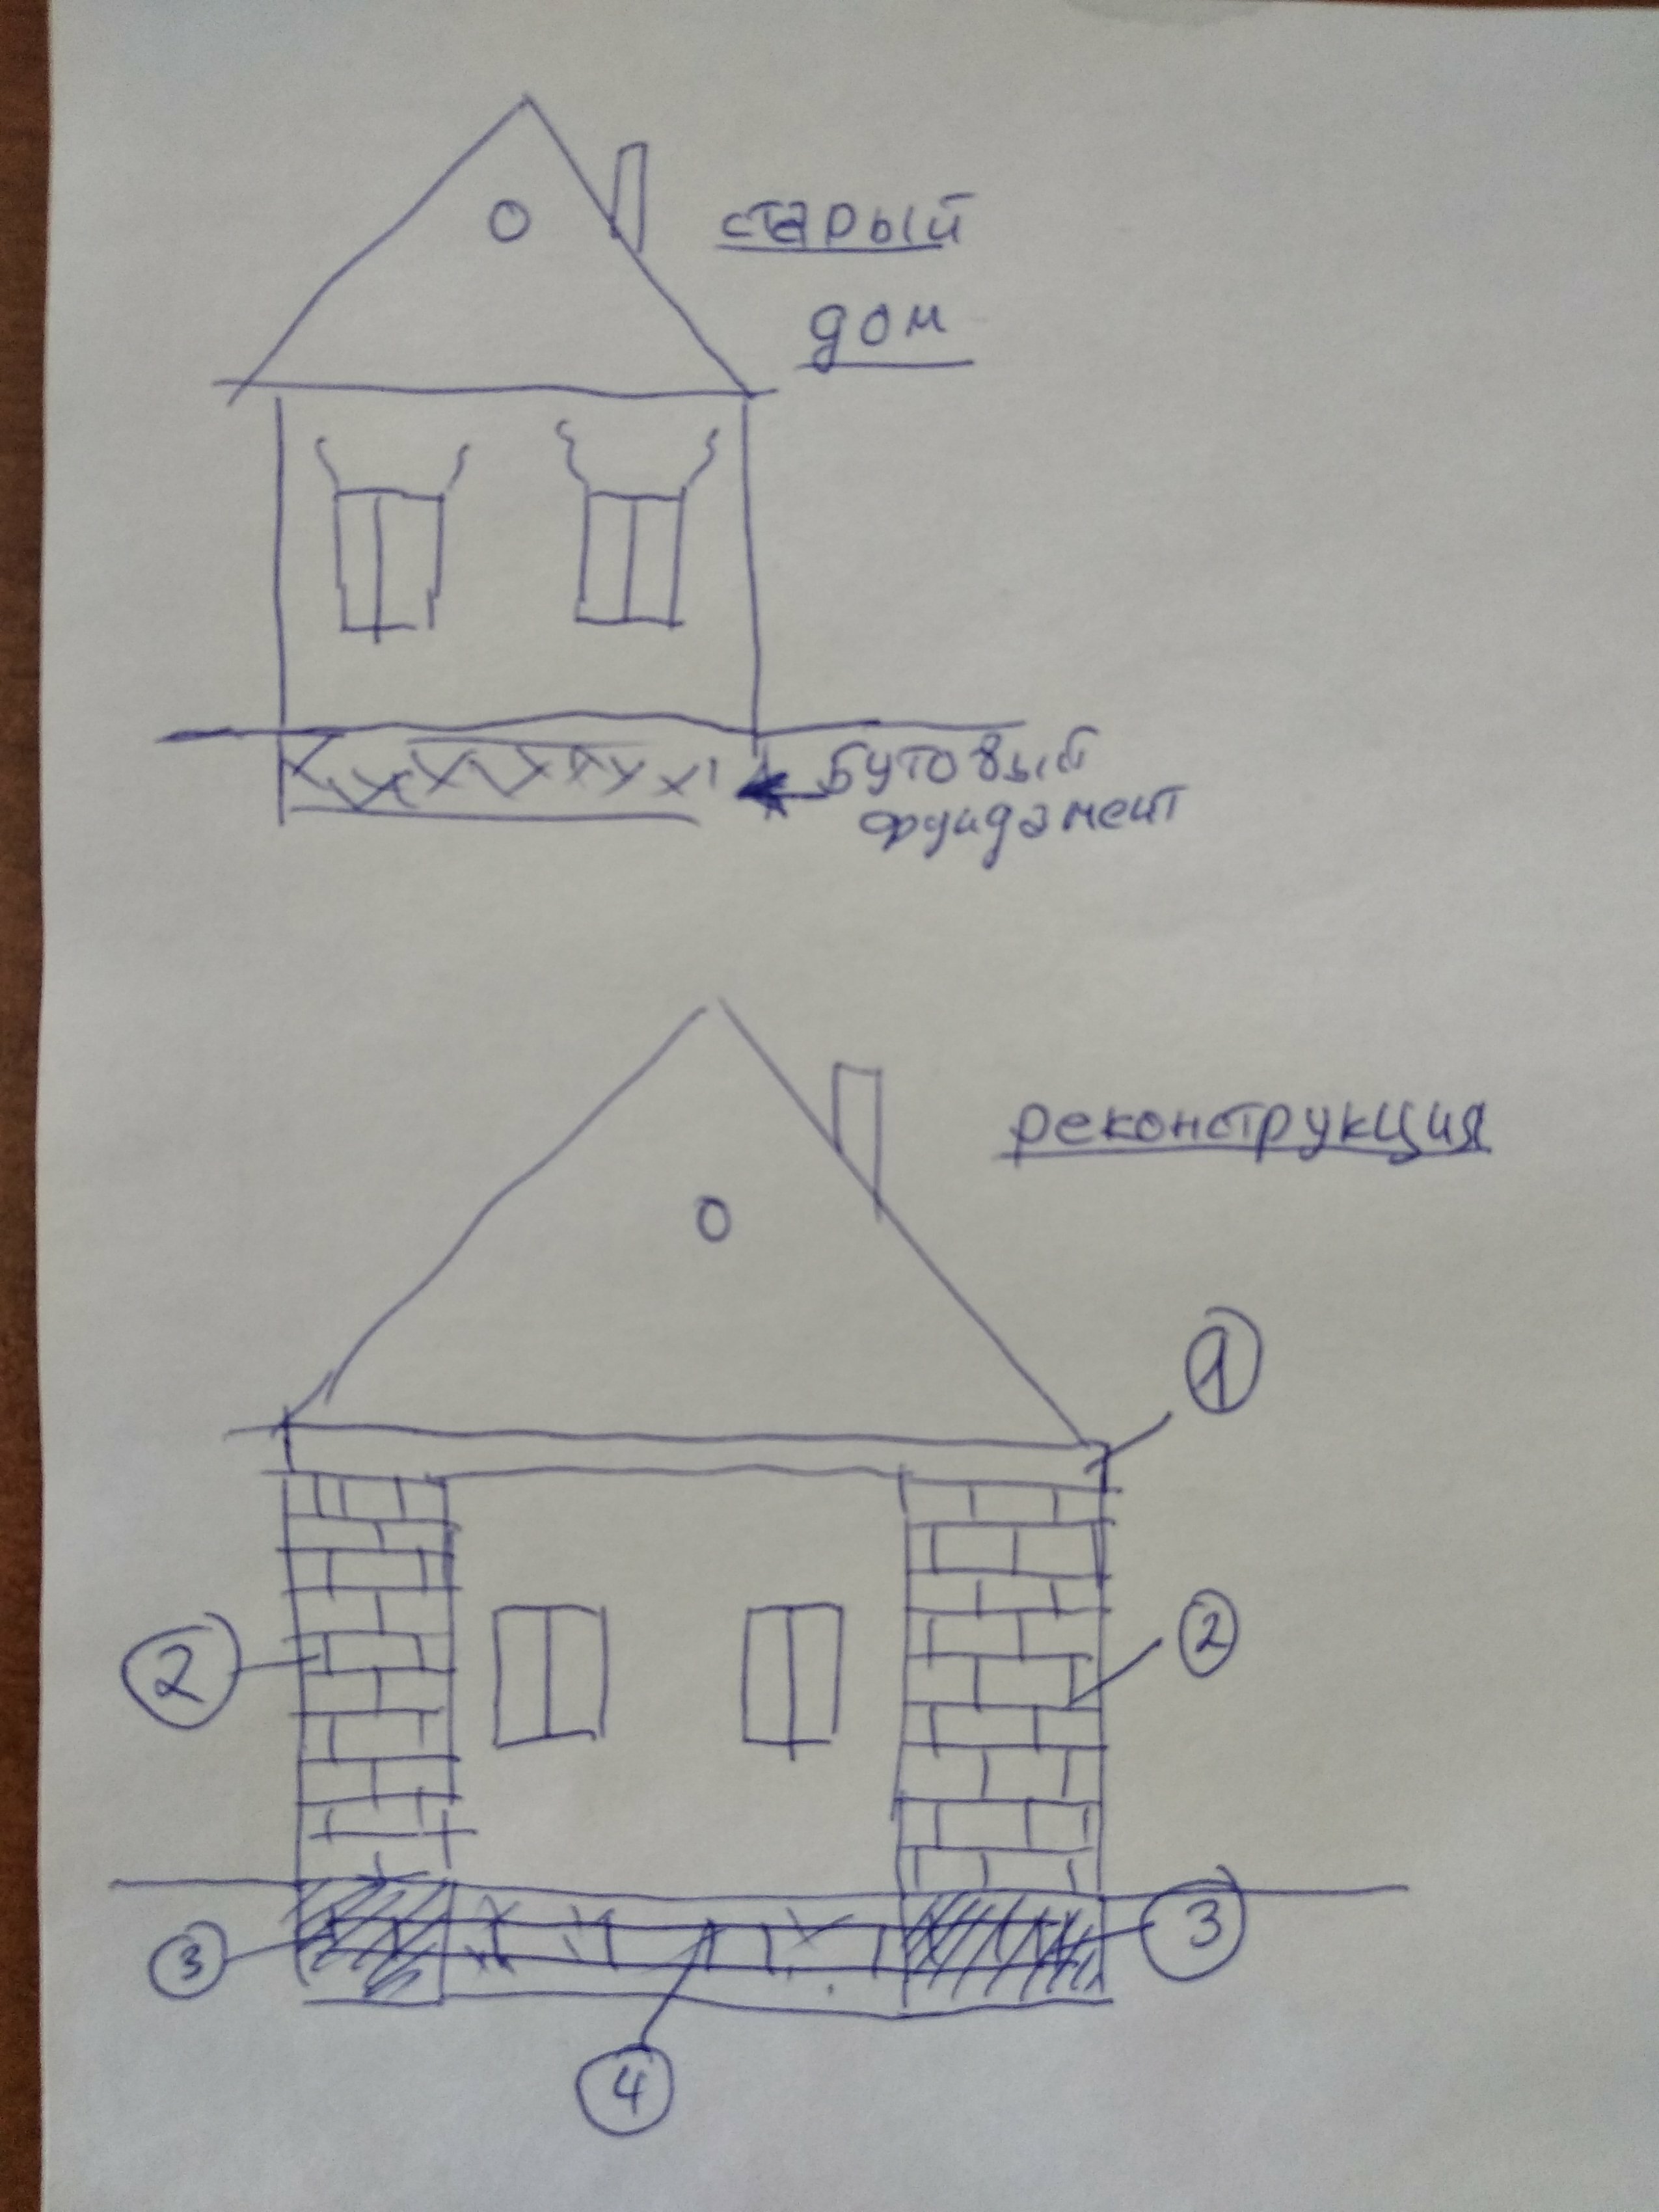 старый
дом
бутовый
фундамент
реконструкция
1
2
2
3
3
4